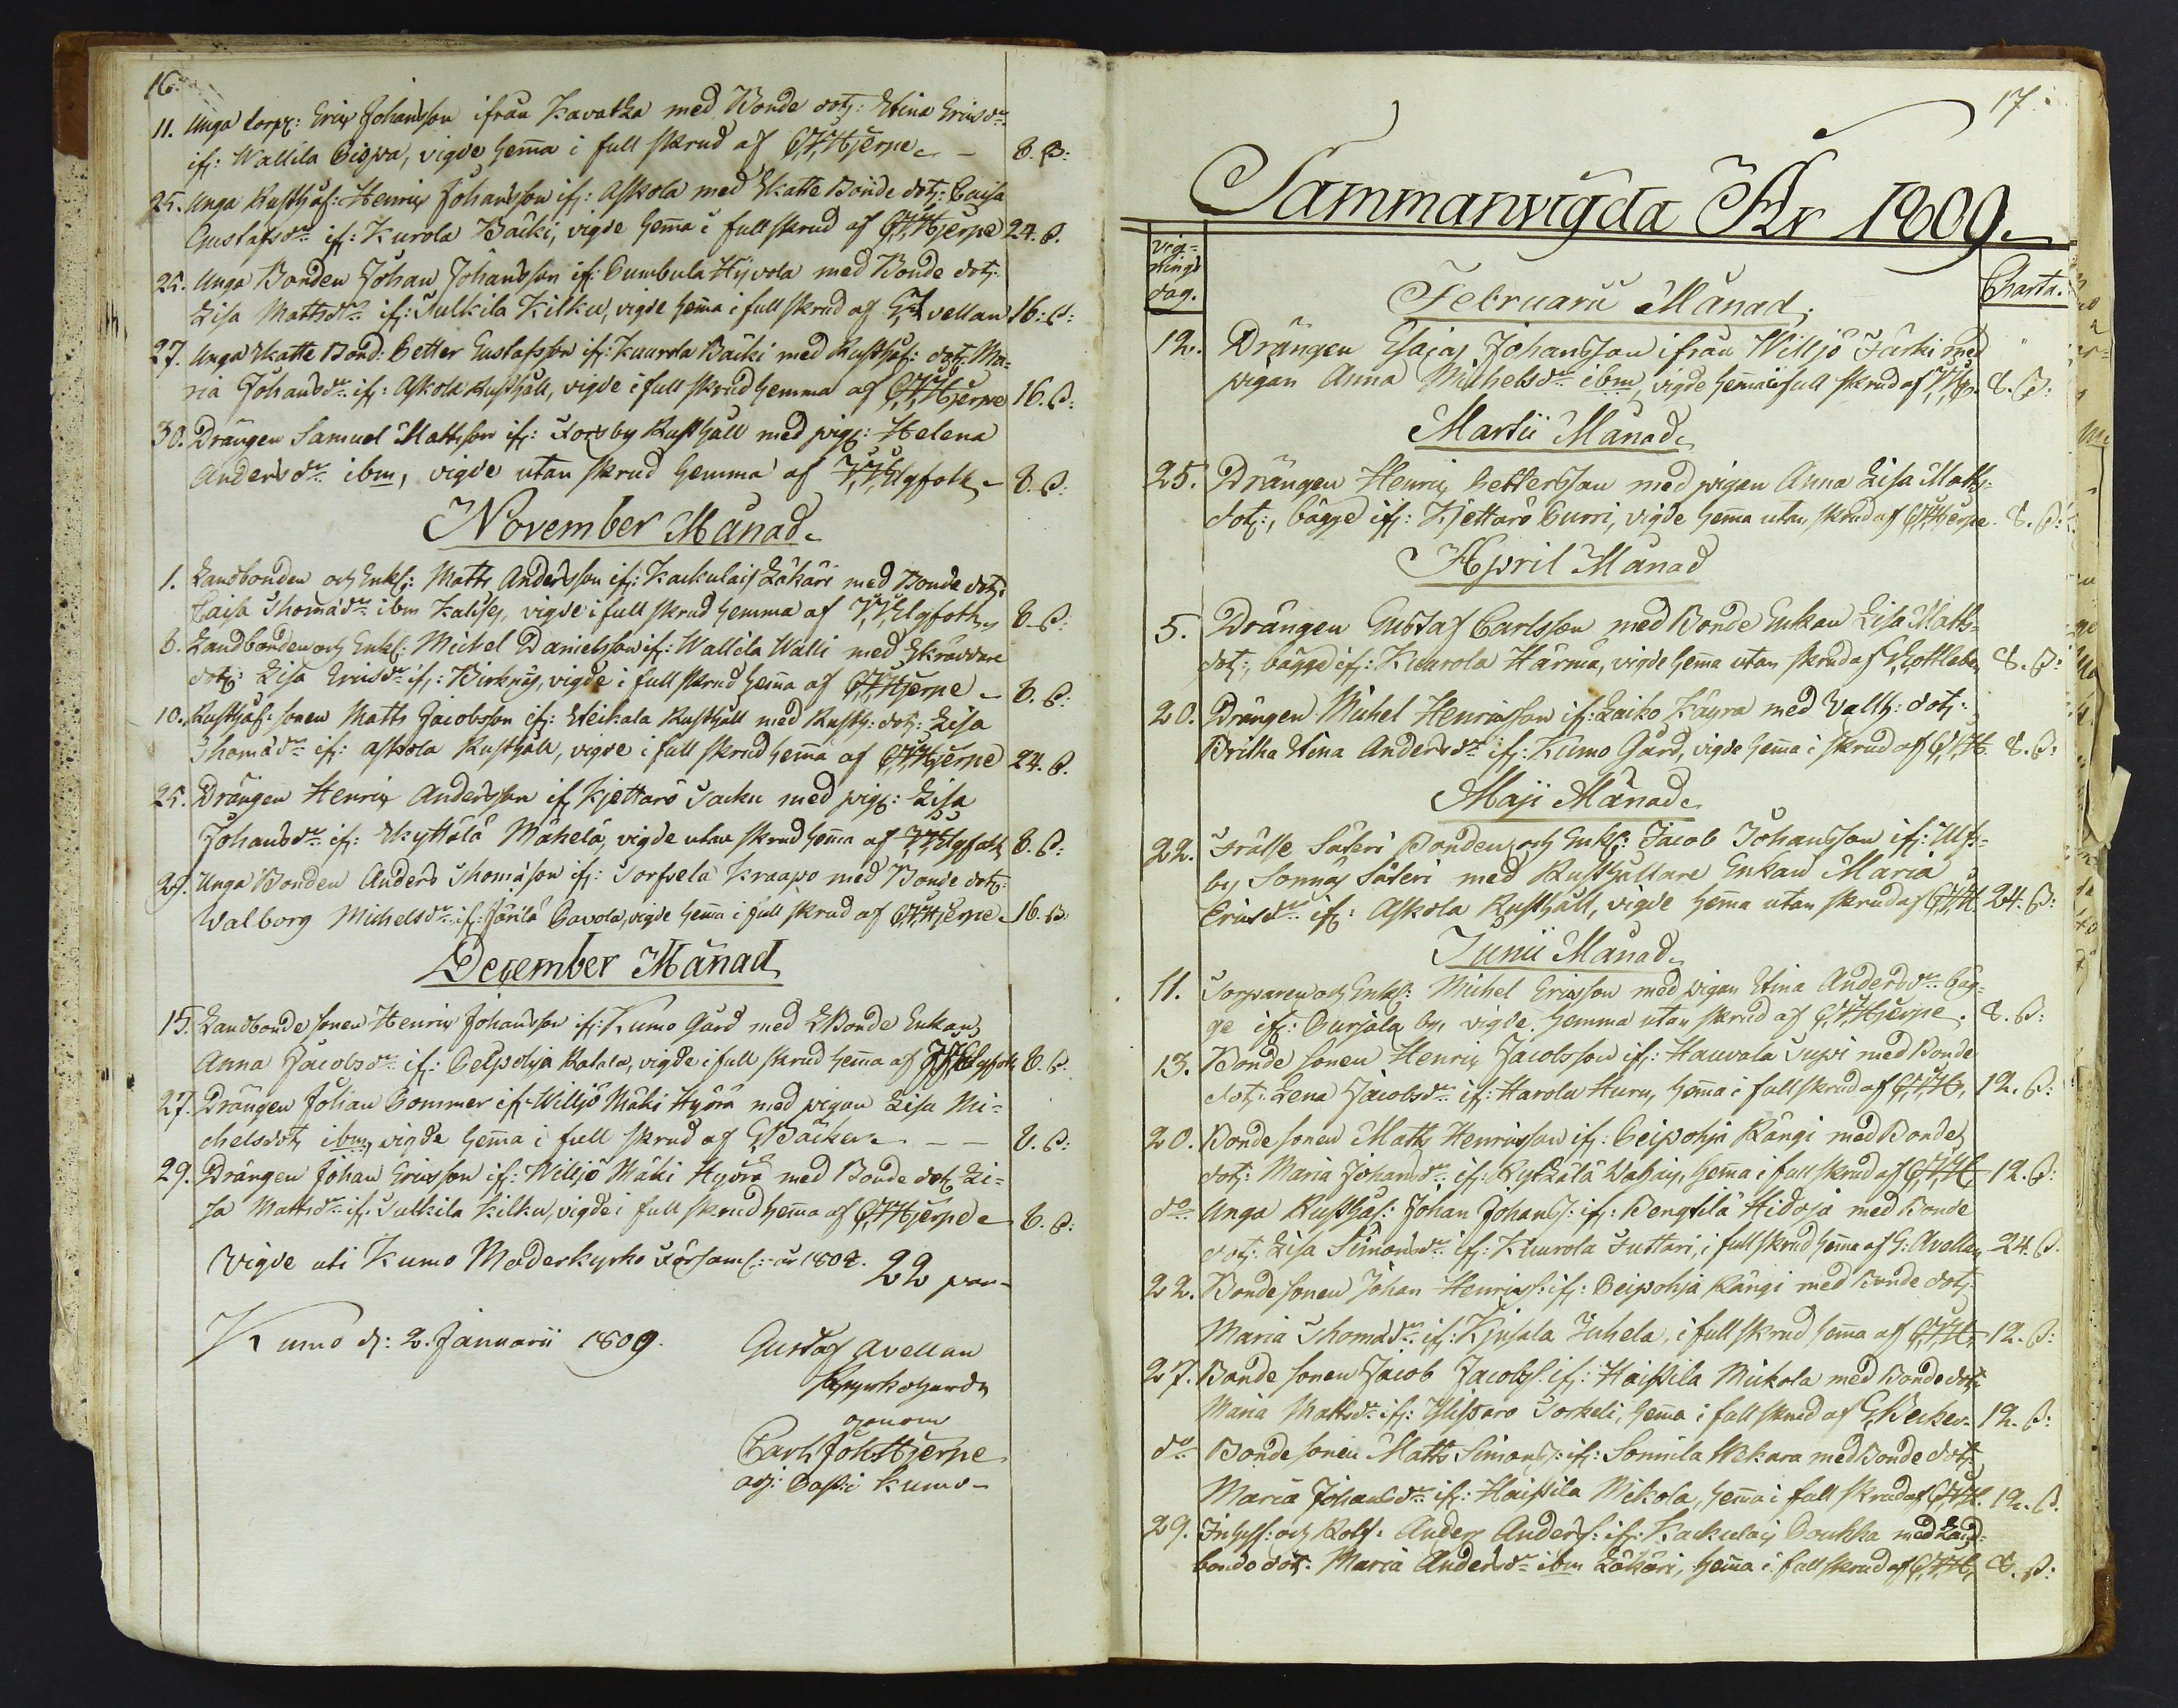 16.
11. Unga torp: Eric Johansson ifrån Kavatka med Bonde dotr: Stina Ericsdr
if: Wallila Cispa, vigde hema i full skrud af C,J,Hjerpe 8. ß:
25. Unga Rusthål: Henric Johansson if: Askola med Skatte Bonde dotr: Caisa
Gustafsdr if: Kurola Bäcki, vigde hema i full skrud af C,J,Hjerpe 24. ß.
25. Unga Bonden Johan Johansson if: Cumbula Hyvola med Bonde dotr:
Lisa Mattsdr if: Sulkila Kilku, vigde hema i full skrud af G, Avellan 16: ß:
27. Unga Skatte Bond: Petter Gustafsson if: Kuurola Bäcki med Rusthål: dotr: Ma-
ria Johansdr if: Askola Rusthåll, vigde i full skrud hemma af C,J,Hjerpe 16. ß:
30. Drängen Samuel Mattsson if: Forsby Rusthåll med pig: Helena
Andersdr ibm, vigde utan skrud hemma af J,J,Elgfoth 8. ß:
November Månad
1. Landbonden och Enkl: Matts Andersson if: Kackulais Lähäri med Bonde dotr:
Caisa Thomædr ibm Kalisey, vigde i full skrud hemma af J,J,Elgfoth 8. ß:
8. Landbonden och Enkl: Michel Danielsson if: Wallila Walli med Skräddare
dotr: Lisa Ericsdr if: Birknäs, vigde i full skrud hema af C,J,Hjerpe 8. ß:
10. Rusthål: sonen Matts Jacobsson if: Steikala Rusthåll med Rusth: dotr: Lisa
Thomædr if: Askola Rusthåll, vigde i full skrud hema af C,J,Hjerpe 24. ß.
25. Drängen Henric Andersson if Kjettarö Jacku med pig: Lisa
Johansdr if: Skyttälä Mähelä, vigde utan skrud hema af J,J,Elgfoth 8. ß:
29. Unga Bonden Anders Thomæson if: Torfvelä Kraapo med Bonde dotr:
Walborg Michelsdr if: Järilä Pavola, vigde hema i full skrud af C,J,Hjerpe 16. ß:
December Månad
15. Landbonde sonen Henric Johansson if: Kumo Gård med LBonde Enkan
Anna Jacobsdr if: Peipohja Ratala, vigde i full skrud hema af J,J,Elgfoth 8. ß.
27. Drängen Johan Pommer if: Williö Mäki Hyörä med pigan Lisa Mi-
chelsdotr ibm, vigde hema i full skrud af G,Bäcker 8. ß:
29. Drängen Johan Ericsson if: Williö Mäki Hyörä med Bonde dotr Li-
sa Mattsdr if: Sulkila Kilku, vigde i full skrud hema af C,J,Hjerpe 8. ß:
Vigde uti Kumo Moderkyrko Församl: år 1808. 22 par
Kumo d: 2. Januarii 1809.
Gustaf Avellan
Kyrkoherde
genom
Carl Joh. Hjerpe
adj: Past: i Kumo
17.
Sammanvigda År 1809.
vig-
nings
dag.
Charta.
Februarii Månad.
12. Drängen Esaias Johansson ifrån Williö Järki med
pigan Anna Michelsdr ibm, vigde hema i full skrud af 8. ß:
Martii Månad
25. Drängen Henric Pettersson med pigan Anna Lisa Matts-
dotr:, bägge if: Kjettarö Purri, vigde hema utan skrud af C,J,Hjerpe 8. ß:
April Månad
5. Drängen Gustaf Carlsson med Bonde Enkan Lisa Matts-
dotr:, bägge if: Kuurola Härmä, vigde hema utan skrud af Gottleben 8. ß:
20. Drängen Michel Henricsson if: Laiko Käyrä med Vallh: dotr:
Britha Stina Andersdr if: Kumo Gård, vigde hema i skrud af C,J,H. 8. ß:
Maji Månad
22. Frälse Säteri Bonden och Enkl: Jacob Johansson if: Ulfs-
by Sonnäs Säteri med Rusthållare Enkan Maria
Ericsdr if: Askola Rusthåll, vigde hema utan skrud af C,J,H. 24. ß:
Junii Månad
11. Torparen och Enkl: Michel Ericsson med pigan Stina Andersdr bäg-
ge if: Purjala by, vigde hemma utan skrud af C,J,Hjerpe. 8. ß:
13. Bonde sonen Henric Jacobsson if: Hauvala Supi med Bonde
dotr. Lena Jacobsdr if: Harola Huru, hema i full skrud af C,J,H, 12. ß:
20. Bonde sonen Matts Henricsson if: Peipohja Rångi med Bonde
dotr: Maria Johansdr if: Kyttälä Wahais, hema i full skrud af C,J,H. 12. ß:
do Unga Rusthål: Johan Johanss: if: Bengtilä Hidoja med Bonde
dotr: Lisa Simonsdr if: Kuurola Juttari, i full skrud hema af G: Avellan 24. ß.
22. Bonde sonen Johan Henricss: if: Peipohja Rångi med Bonde dotr:
Maria Thomædr if: Kjusala Juhela, i full skrud hema af C,J,H. 12. ß:
27. Bonde sonen Jacob Jacobss: if: Haistila Mickola med Bonde dotr:
Maria Mattsdr if: Ylistaro Torkeli, hema i full skrud af G,Becker 12. ß:
do Bonde sonen Matts Simonss: if: Sonnila Wekara med Bonde dotr:
Maria Johansdr if: Haistila Mikola, hema i full skrud af C,J,H. 12. ß.
29. Inhys: och Kolf: Anders Anderss: if: Kackulais Poukka med Land-
bonde dotr: Maria Andersdr ibm Lähäri, hema i full skrud af C,J,H, 8. ß: